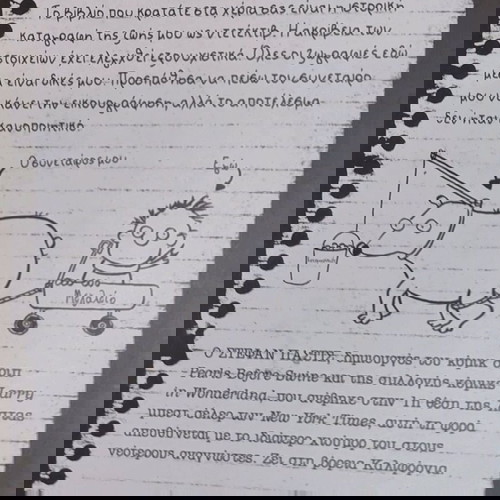 Το βιβλίο που κρατάτε στα χέρια σας είναι η ιστορική
καταγραφή της ζωής μου ως ντετέκτιβ. Η ακρίβεια των
στοιχείων έχει ελεγχθεί εξονυχιστικά. Όλες οι ζωγραφιές εδώ
μέσα είναι δικές μου. Προσπάθησα να πείσω τον συνεταίρο
μου να κάνει την εικονογράφηση, αλλά το αποτέλεσμα
δεν ήταν ικανοποιητικό.
Ο συνεταίρος μου
Εγώ
Μυαλείο
Ο ΣΤΕΦΑΝ ΠΑΣΤΙΣ, δημιουργός του κόμικ
Pearls Before Swine και της συλλογής κόμικ
in Wonderland, που ανέβηκε στην 1η θέση της
μπεστ σέλερ των New York Times, αυτή τη φορά
απευθύνεται με το ιδιαίτερο χιούμορ του στους
νεότερους αναγνώστες. Ζει στη βόρεια Καλιφόρνια